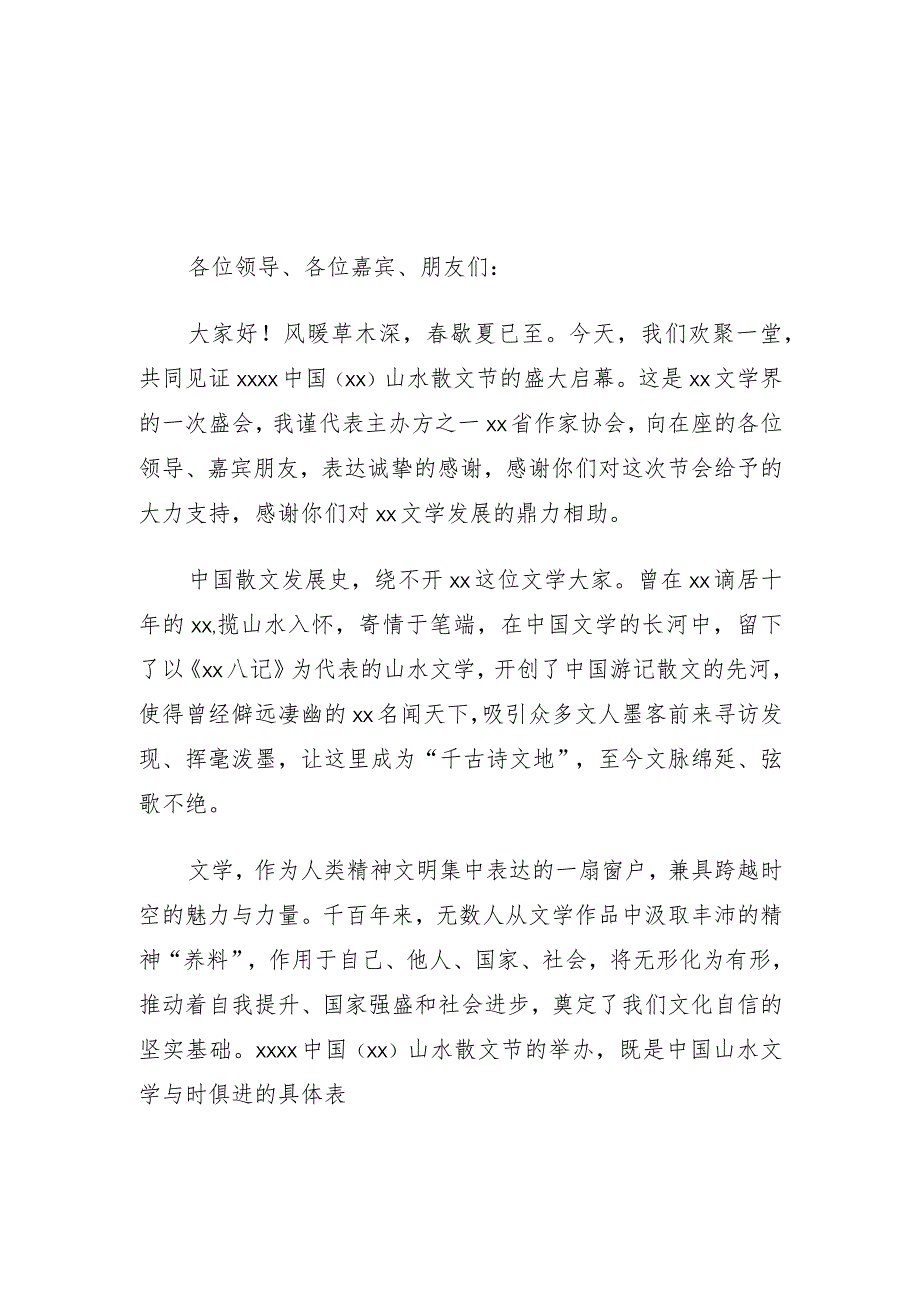 各位领导、各位嘉宾、朋友们：
大家好！风暖草木深，春歇夏已至。今天，我们欢聚一堂，
共同见证 xxxx 中国（xx）山水散文节的盛大启幕。这是 xx 文学界
的一次盛会，我谨代表主办方之一 xx 省作家协会，向在座的各位
领导、嘉宾朋友，表达诚挚的感谢，感谢你们对这次节会给予的
大力支持，感谢你们对 xx 文学发展的鼎力相助。
中国散文发展史，绕不开 xx 这位文学大家。曾在 xx 谪居十
年的 xx,揽山水入怀，寄情于笔端，在中国文学的长河中，留下
了以《xx 八记》为代表的山水文学，开创了中国游记散文的先河，
使得曾经僻远凄幽的 xx 名闻天下，吸引众多文人墨客前来寻访发
现、挥毫泼墨，让这里成为“千古诗文地”，至今文脉绵延、弦
歌不绝。
文学，作为人类精神文明集中表达的一扇窗户，兼具跨越时
空的魅力与力量。千百年来，无数人从文学作品中汲取丰沛的精
神“养料”，作用于自己、他人、国家、社会，将无形化为有形，
推动着自我提升、国家强盛和社会进步，奠定了我们文化自信的
坚实基础。xxxx 中国（xx）山水散文节的举办，既是中国山水文
学与时俱进的具体表